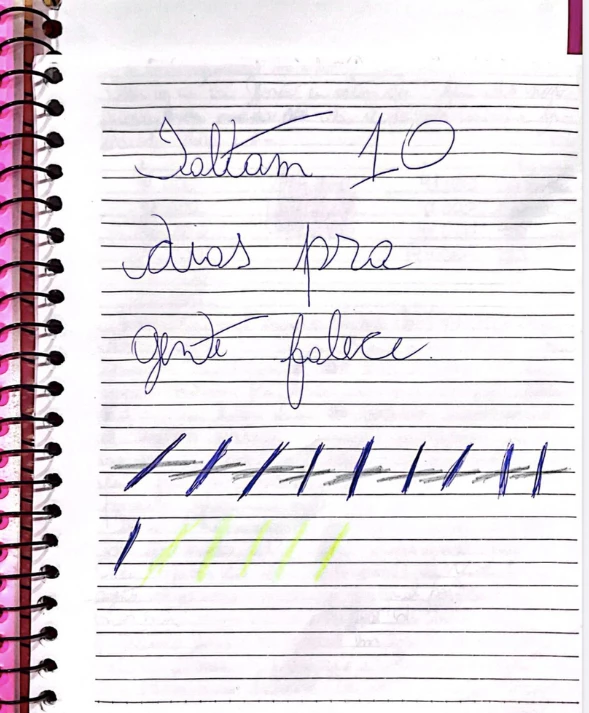 Faltam 10
dias pra
gente falece.